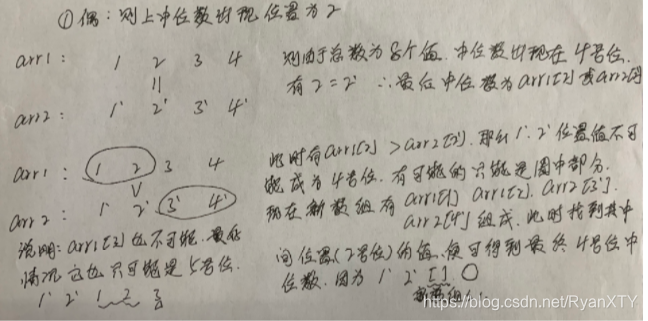 ①偶：则上中位数出现位置为2
arr1： 1 2 3 4
||
arr2： 1' 2' 3' 4'
则由于总数为8个值，中位数出现在4号位．
有2=2' ∴最后中位数为arr1[2]或arr2[2]
arr1： 1 2 3 4
V
arr2： 1' 2' 3' 4'
说明：arr1[3]也不可能，最好
情况它也只可能是5号位．
1' 2' 1 2 3
此时有arr1[2] > arr2[2']．那么1'.2'位置值不可
能成为4号位．有可能的只能是圈中部分．
现在新数组有arr1[1] arr1[2]. arr2[3'].
arr2[4']组成．此时找到其中
间位置(2号位)的值．便可得到最终4号位中
位数．因为 1' 2' [ ] O
https://blog.csdn.net/RyanXTY